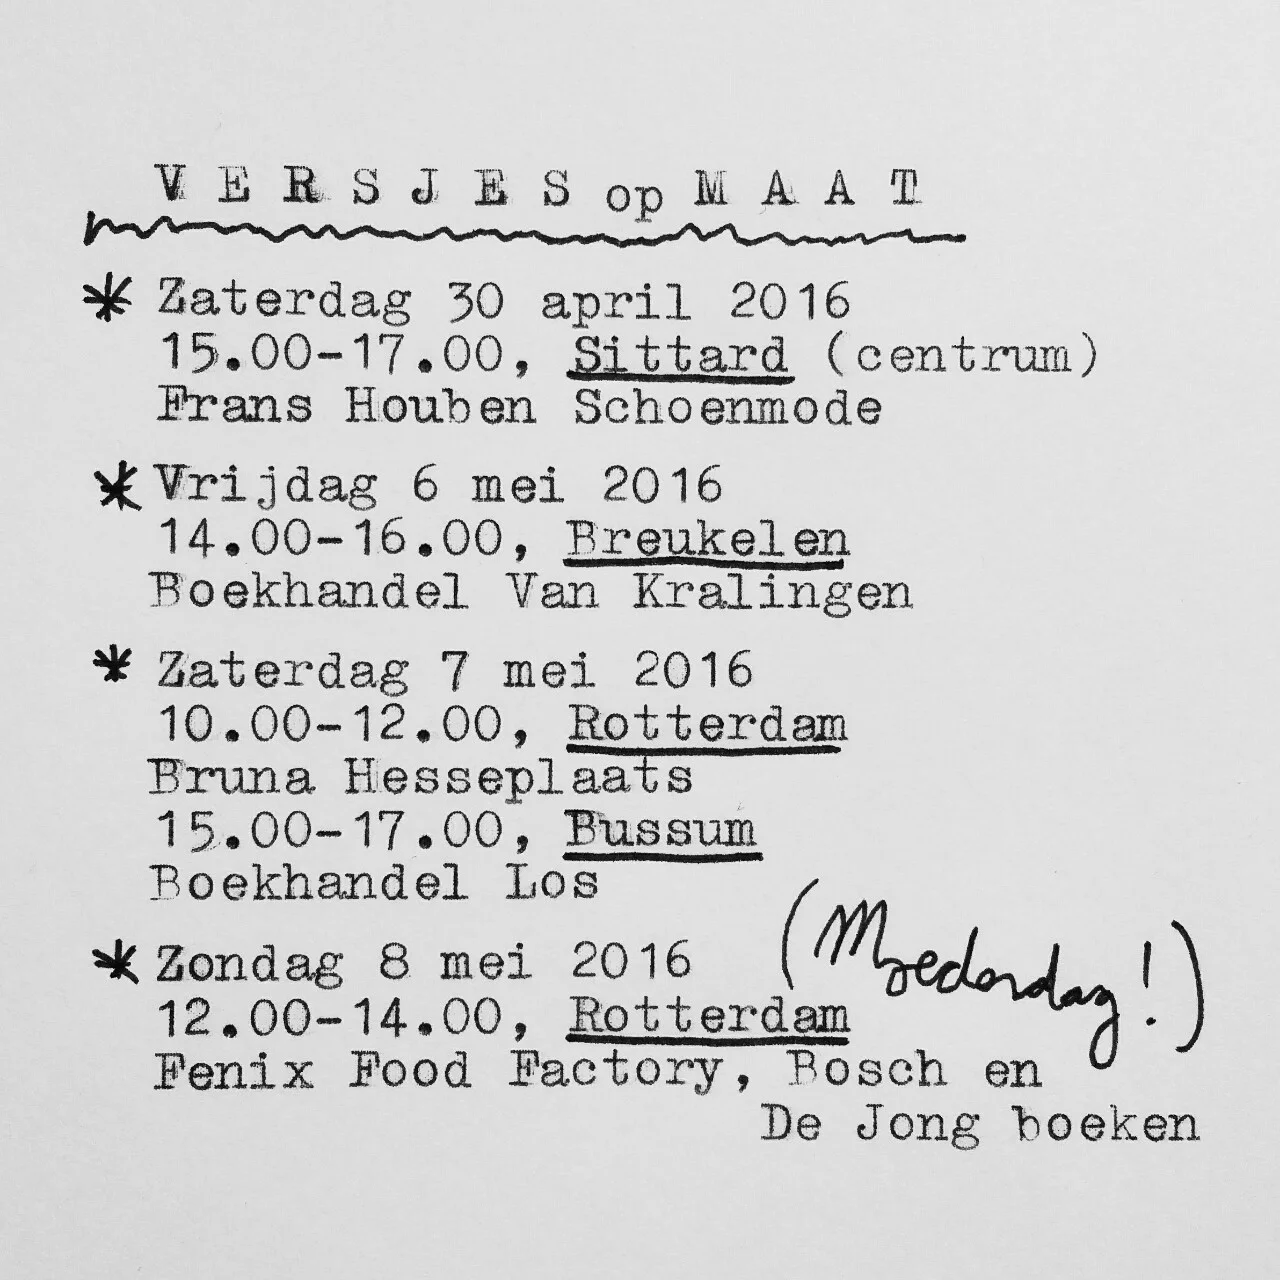 VERSJES op MAAT
* Zaterdag 30 april 2016
15.00-17.00, Sittard (centrum)
Frans Houben Schoenmode
* Vrijdag 6 mei 2016
14.00-16.00, Breukelen
Boekhandel Van Kralingen
* Zaterdag 7 mei 2016
10.00-12.00, Rotterdam
Bruna Hesseplaats
15.00-17.00, Bussum
Boekhandel Los
* Zondag 8 mei 2016 (Moederdag!)
12.00-14.00, Rotterdam
Fenix Food Factory, Bosch en
De Jong boeken